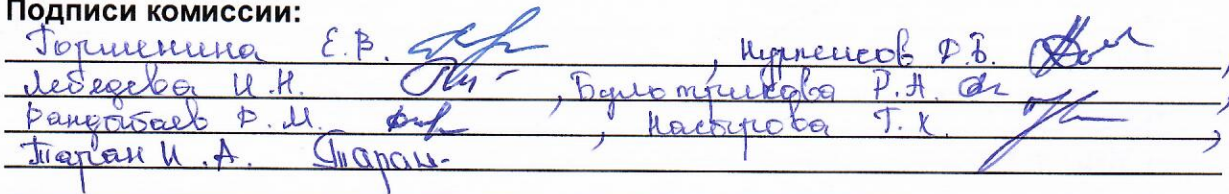 Подписи комиссии:
Горшенина Е.В. , Нурпеисов Р.Б. ,
Лебедева И.Н. , Р.А. ,
Рандабаев Р.М. , Насырова Г.Х. ,
Таран И.А. Таран